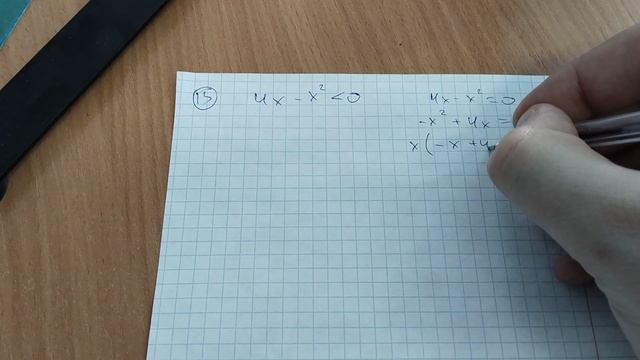 13 4x - x² < 0
4x - x² = 0
-x² + 4x =
x(-x + 4